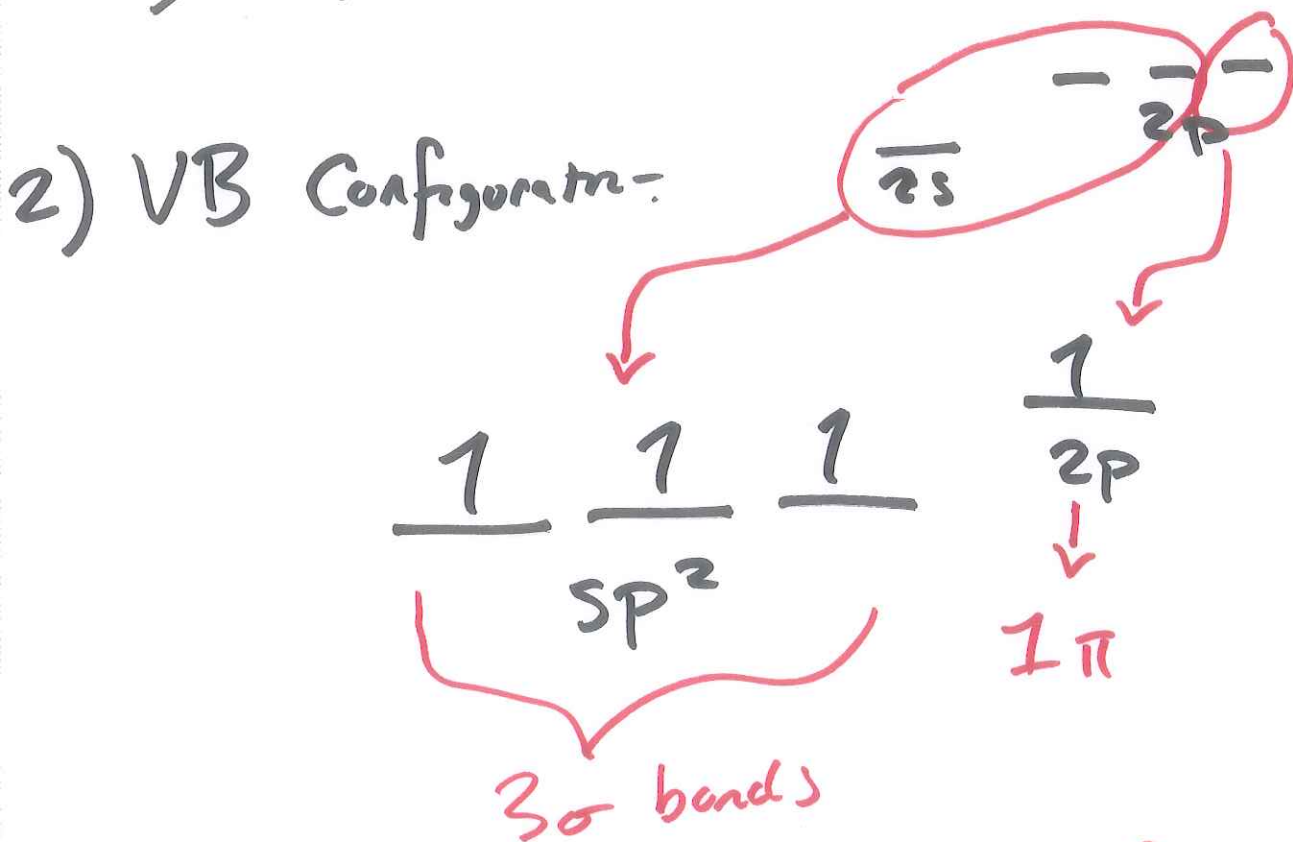 2p
2) VB Configuratn:
2s
1 1 1 1
sp² 2p
1π
3σ bonds